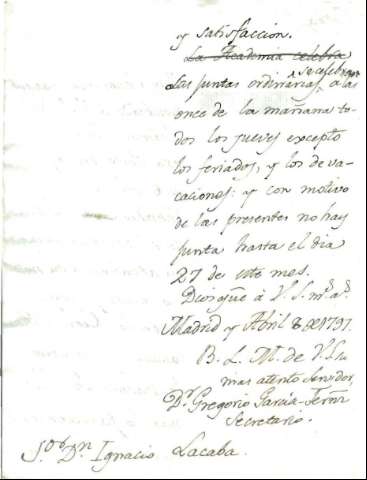 y satisfaccion.
La Academia celebra
las juntas ordinarias se celebran a las
once de la mañana to-
dos los jueves excepto
los feriados, y los de va-
caciones: y con motivo
de las presentes no hay
junta hasta el dia
27 de este mes.
Dios gũe à V.S. m.s a.s
Madrid y Abril 8 de 1797.
B. L. M. de V.S. su
mas atento servidor,
D.r Gregorio Garcia Fern.z
Secretario.
S.or D.n Ignacio Lacaba.